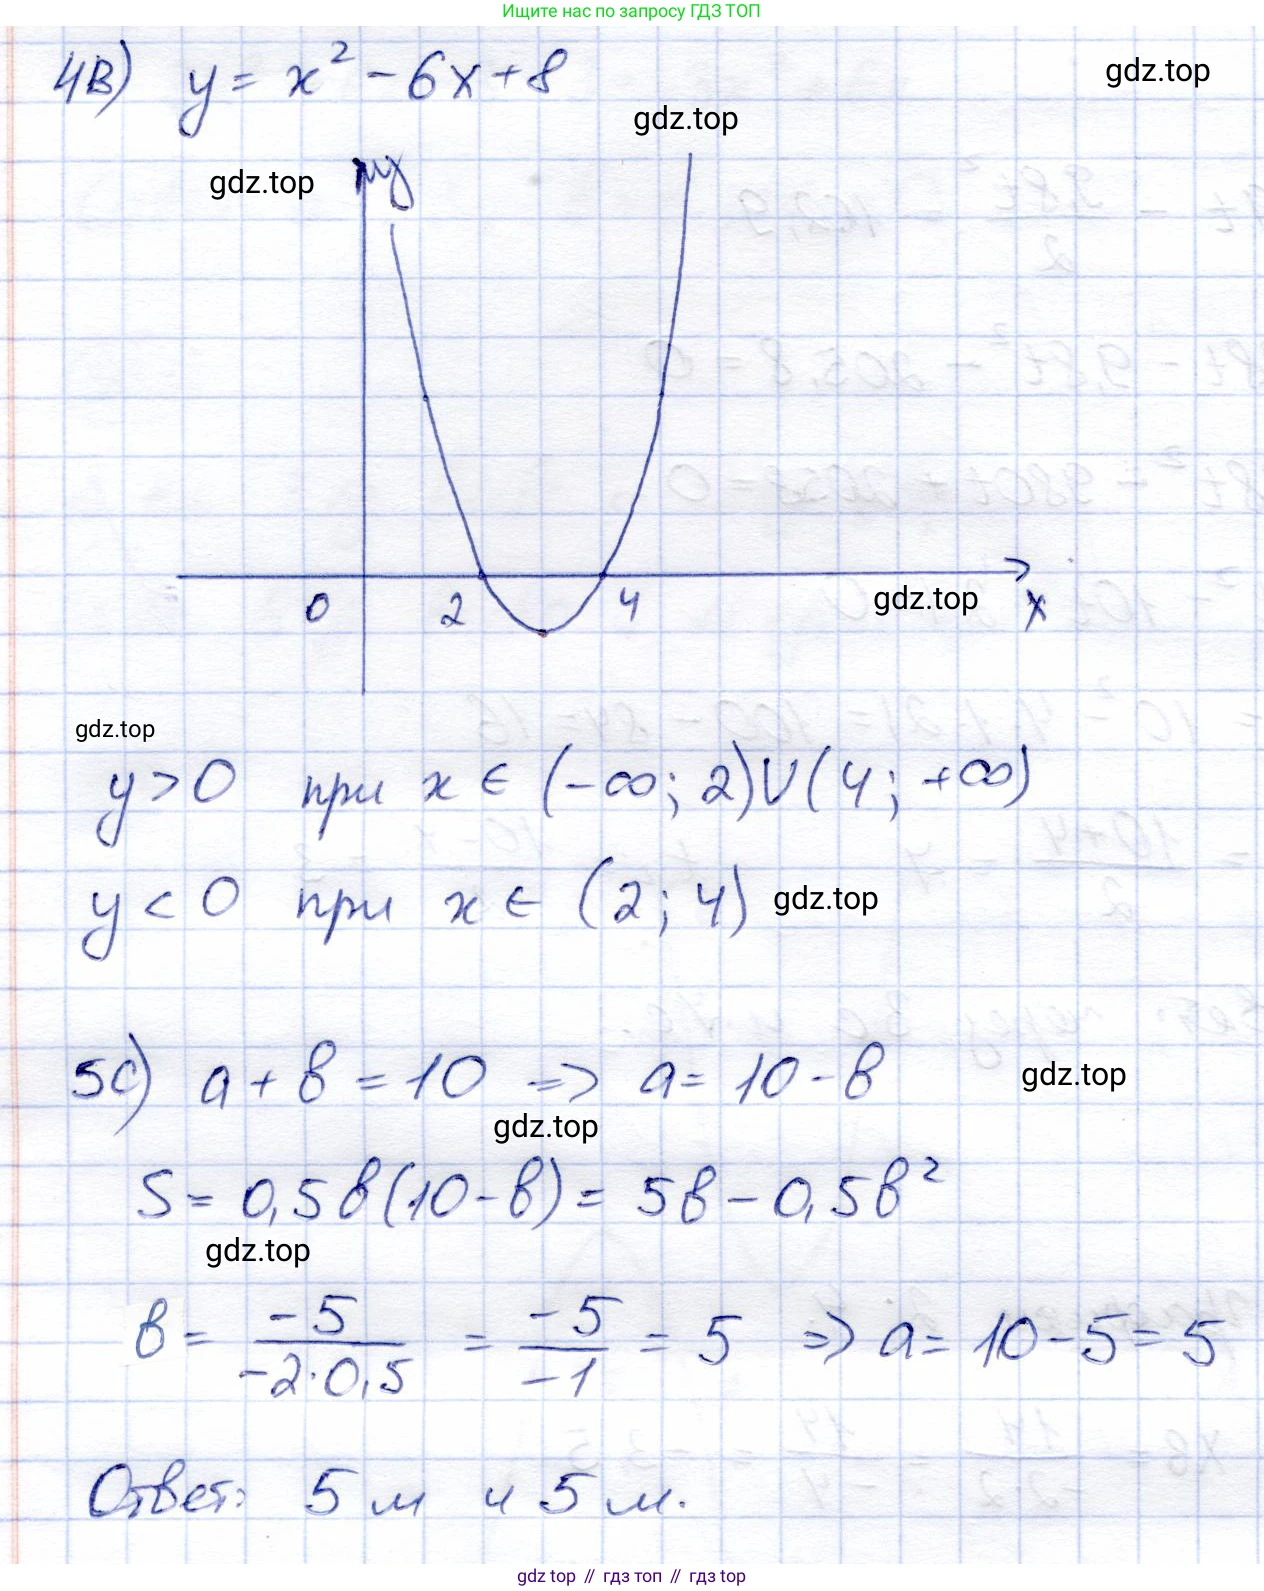 Ищите нас по запросу ГДЗ ТОП
4В) y = x² - 6x + 8
gdz.top
gdz.top
gdz.top
y
0 2 4 x
gdz.top
gdz.top
y > 0 при x ∈ (-∞; 2) ∪ (4; +∞)
y < 0 при x ∈ (2; 4)
gdz.top
5С) a + b = 10 => a = 10 - b
gdz.top
gdz.top
S = 0,5b(10 - b) = 5b - 0,5b²
gdz.top
b = -5/(-2·0,5) = -5/-1 = 5 => a = 10 - 5 = 5
Ответ: 5 м и 5 м.
gdz top // гдз топ // гдз top